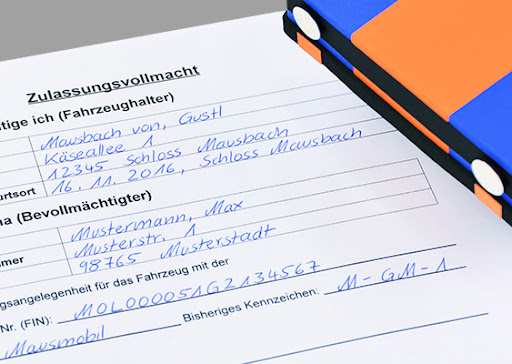 Zulassungsvollmacht
tige ich (Fahrzeughalter)
Mausbach von, Gustl
Käseallee 1
12345 Schloss Mausbach
urtsort 16.11.2016, Schloss Mausbach
na (Bevollmächtigter)
Mustermann, Max
Musterstr. 1
mer 98765 Musterstadt
ngsangelegenheit für das Fahrzeug mit der
Nr. (FIN): MOL000051G2134567
Bisheriges Kennzeichen: M-GM-1
Mausmobil